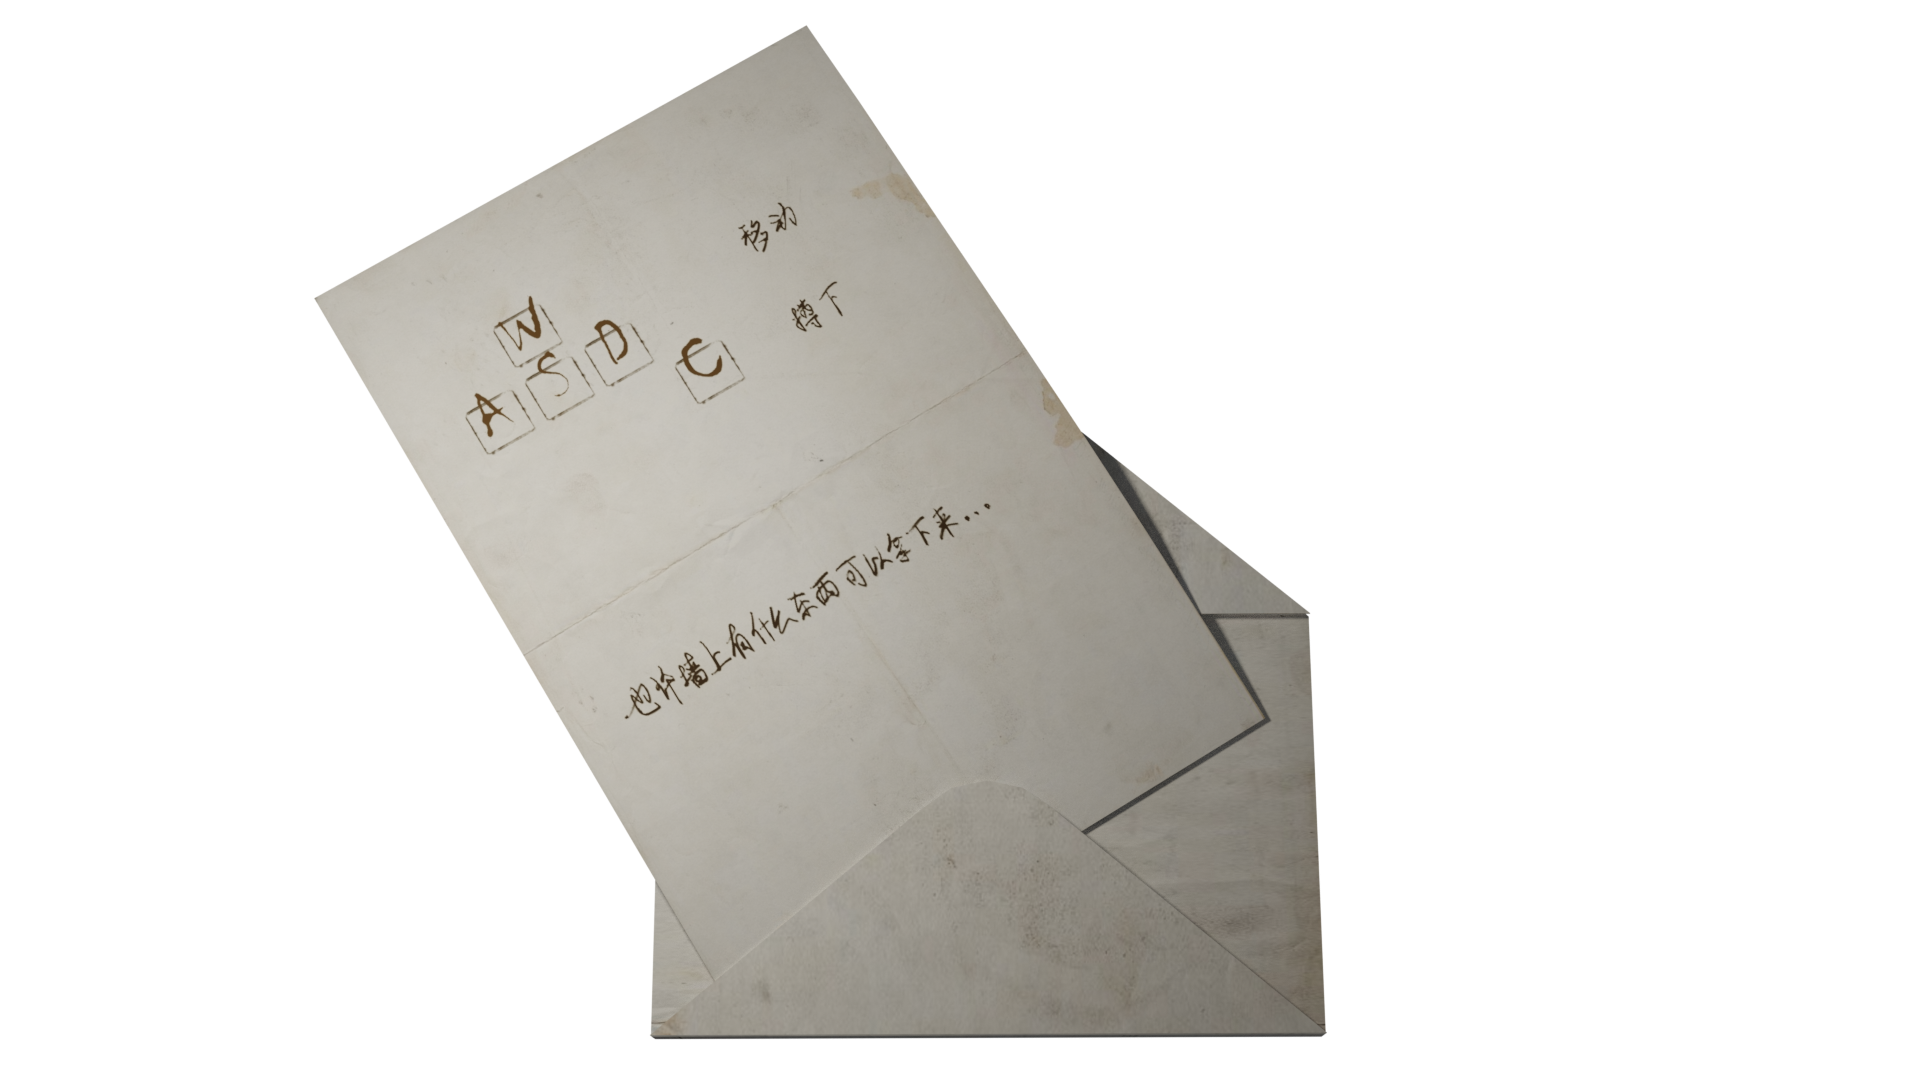 移动
W
A S D C
蹲下
也许墙上有什么东西可以拿下来...